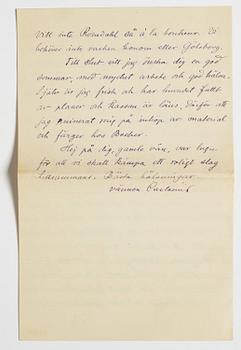 vill inte Romdahl så à la bonheur. Vi
behöver inte varken honom eller Göteborg.
Till slut vill jag önska dig en god
sommar, med mycket arbete och god hälsa.
Själv är jag frisk och har huvudet fullt
av planer och kassan är läns. Därför att
jag ruinerat mig på inköp av material
och färger hos Becker.
Hej på dig, gamle vän, var lugn
för att vi skall kämpa ett roligt slag
tillsammans. Bästa hälsningar
vännen